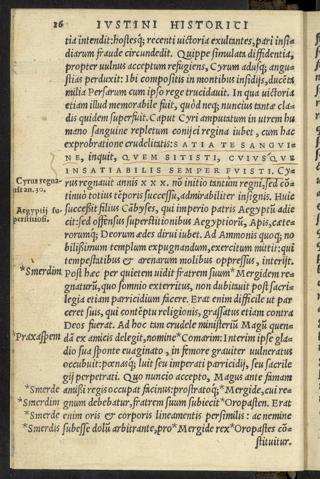 26 IVSTINI HISTORICI
tia intendit: hostesq́; recenti victoria exultantes, pari insi-
diarum fraude circundedit. Quippe simulata diffidentia,
propter vulnus acceptum refugiens, Cyrum adusq; angu-
stias perduxit: Ibi compositis in montibus insidijs, ducēta
milia Persarum cum ipso rege trucidauit. In qua victoria
etiam illud memorabile fuit, quòd neq; nuncius tantæ cla-
dis quidem superfuit. Caput Cyri amputatum in vtrem hu
mano sanguine repletum conijci regina iubet, cum hac
exprobratione crudelitatis: SATIA TE SANGVI-
NE, inquit, QVEM SITISTI, CVIVSQVE
INSATIABILIS SEMPER FVISTI. Cy-
Cyrus regna-
uit an. 30.
rus regnauit annis xxx. nō initio tantum regni, sed cō-
tinuò totius tēporis successu, admirabiliter insignis. Huic
successit filius Cābyses, qui imperio patris Aegyptū adie
Aegyptij su-
perstitiosi.
cit: sed offensus superstitionibus Aegyptiorū, Apis, cæte-
rorumq́; Deorum ædes dirui iubet. Ad Ammonis quoq; no
bilissimum templum expugnandum, exercitum mittit: qui
tempestatibus & arenarum molibus oppressus, interijt.
*Smerdim Post hæc per quietem uidit fratrem suum *Mergidem re-
gnaturū, quo somnio exterritus, non dubitauit post sacri-
legia etiam parricidium facere. Erat enim difficile ut par
ceret suis, qui contēptu religionis, grassatus etiam contra
Deos fuerat. Ad hoc tam crudele ministeriū Magū quen-
*Praxaspem dā ex amicis delegit, nomine *Comarim: Interim ipse gla-
dio sua sponte euaginato, in femore grauiter uulneratus
occubuit: pœnasq́; luit seu imperati parricidij, seu sacrile
gij perpetrati. Quo nuncio accepto, Magus ante famam
*Smerde amissi regis occupat facinus: prostratoq́; *Mergide, cui re-
*Smerdim gnum debebatur, fratrem suum subiecit *Oropasten. Erat
*Smerde enim oris & corporis lineamentis persimilis: ac nemine
*Smerdis subesse dolū arbitrante, pro *Mergide rex *Oropastes cō-
stituitur.